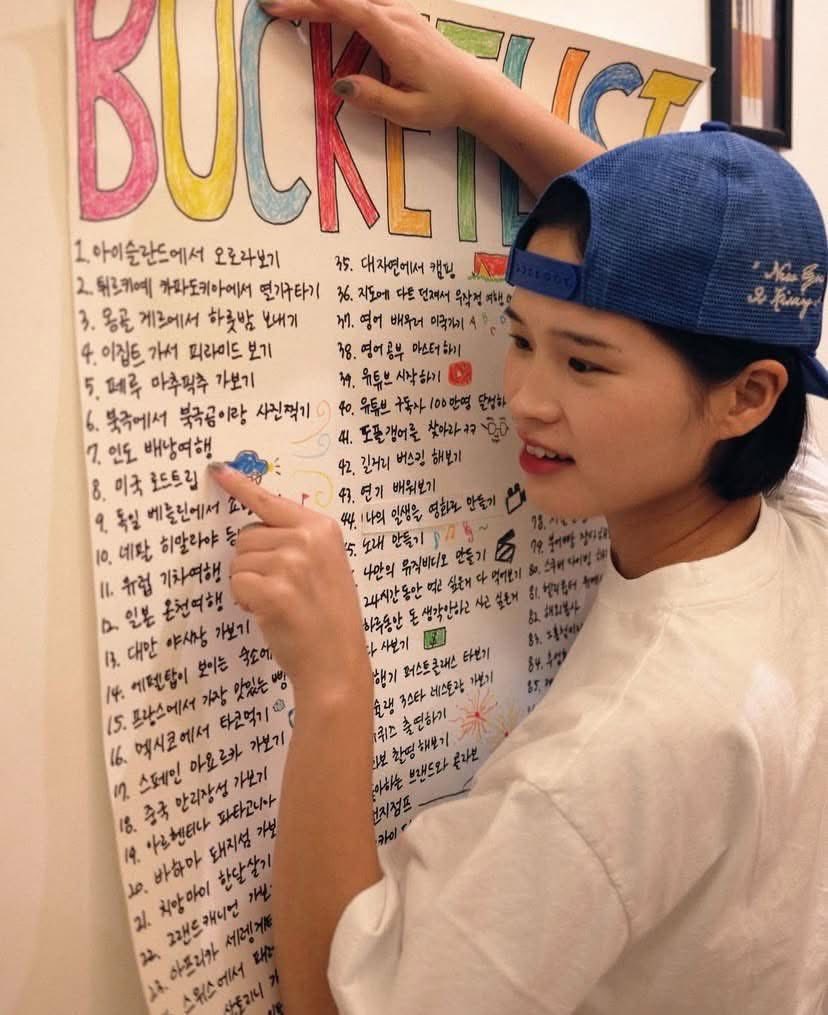 BUCKETLIST
1. 아이슬란드에서 오로라보기
2. 튀르키예 카파도키아에서 열기구타기
3. 몽골 게르에서 하룻밤 보내기
4. 이집트 가서 피라미드 보기
5. 페루 마추픽추 가보기
6. 북극에서 북극곰이랑 사진찍기
7. 인도 배낭여행
8. 미국 로드트립
9. 독일 베를린에서
10. 네팔 히말라야
11. 유럽 기차여행
12. 일본 온천여행
13. 대만 야시장 가보기
14. 에펠탑이 보이는 숙소에
15. 프랑스에서 가장 맛있는 빵
16. 멕시코에서 타코먹기
17. 스페인 마요르카 가보기
18. 중국 만리장성 가보기
19. 아르헨티나 파타고니아
20. 바하마 돼지섬 가보
21. 치앙마이 한달살기
22. 그랜드캐니언 가보
23. 아프리카 세렝게
스위스에서
산토리니
35. 대자연에서 캠핑
36. 지도에 다트 던져서 무작정 여행
37. 영어 배우러 미국가기
38. 영어공부 마스터하기
39. 유튜브 시작하기
40. 유튜브 구독자 100만명 달성하
41. 도플갱어를 찾아라 ㅋㅋ
42. 길거리 버스킹 해보기
43. 연기 배워보기
44. 나의 일생을 영화로 만들기
노래 만들기
나만의 뮤직비디오 만들기
24시간동안 먹고 싶은거 다 먹어보기
하루동안 돈 생각안하고 사고 싶은거
다 사보기
행기 퍼스트클래스 타보기
슐랭 3스타 레스토랑 가보기
퀴즈 출연하기
촬영해보기
아하는 브랜드와 콜라보
번지점프
78.
79.
80. 스쿠버 다이빙
81. 헬리콥터
82. 해외봉사
83.
84.
85.